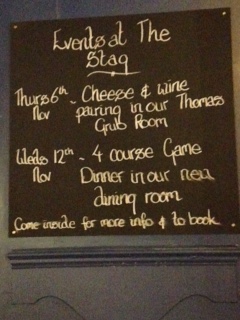 Events at The
Stag
Thurs 6th ~ Cheese & wine
Nov pairing in our Thomas
Grub Room
Weds 12th ~ 4 course Game
Nov Dinner in our new
dining room
Come inside for more info & to book